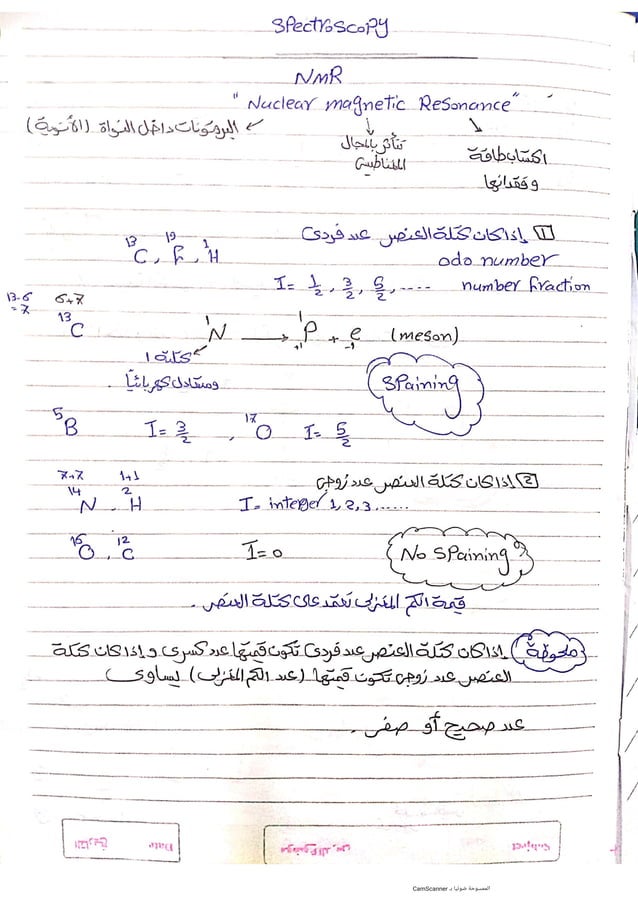 Spectroscopy
NMR
"Nuclear magnetic Resonance"
البروتونات داخل النواة (الأنوية)
تتأثر بالمجال المغناطيسي
اكتساب طاقة وفقدانها
1 إذا كان كتلة العنصر عدد فردي
13C , 19F , 1H
odd number
I = 1/2 , 3/2 , 5/2 , ..... number fraction
13-6 = 7
6+7
13C
1N → 1P+1 + e-1 (meson)
كتلة 1
ومتعادل كهربائياً .
Spaining
5B I = 3/2 , 17O I = 5/2
2 إذا كان كتلة العنصر عدد زوجي
7+7 1+1
14N . 2H I = integer 1, 2, 3 ......
16O , 12C I = 0
No Spaining
قيمة الكم المغزلي تعتمد على كتلة العنصر .
ملحوظة إذا كان كتلة العنصر عدد فردي تكون قيمتها عدد كسري و إذا كان كتلة
العنصر عدد زوجي تكون قيمتها (عدد الكم المغزلي) يساوي
عدد صحيح أو صفر .
Subject موضوع الدرس
Date التاريخ
الممسوحة ضوئيا بـ CamScanner